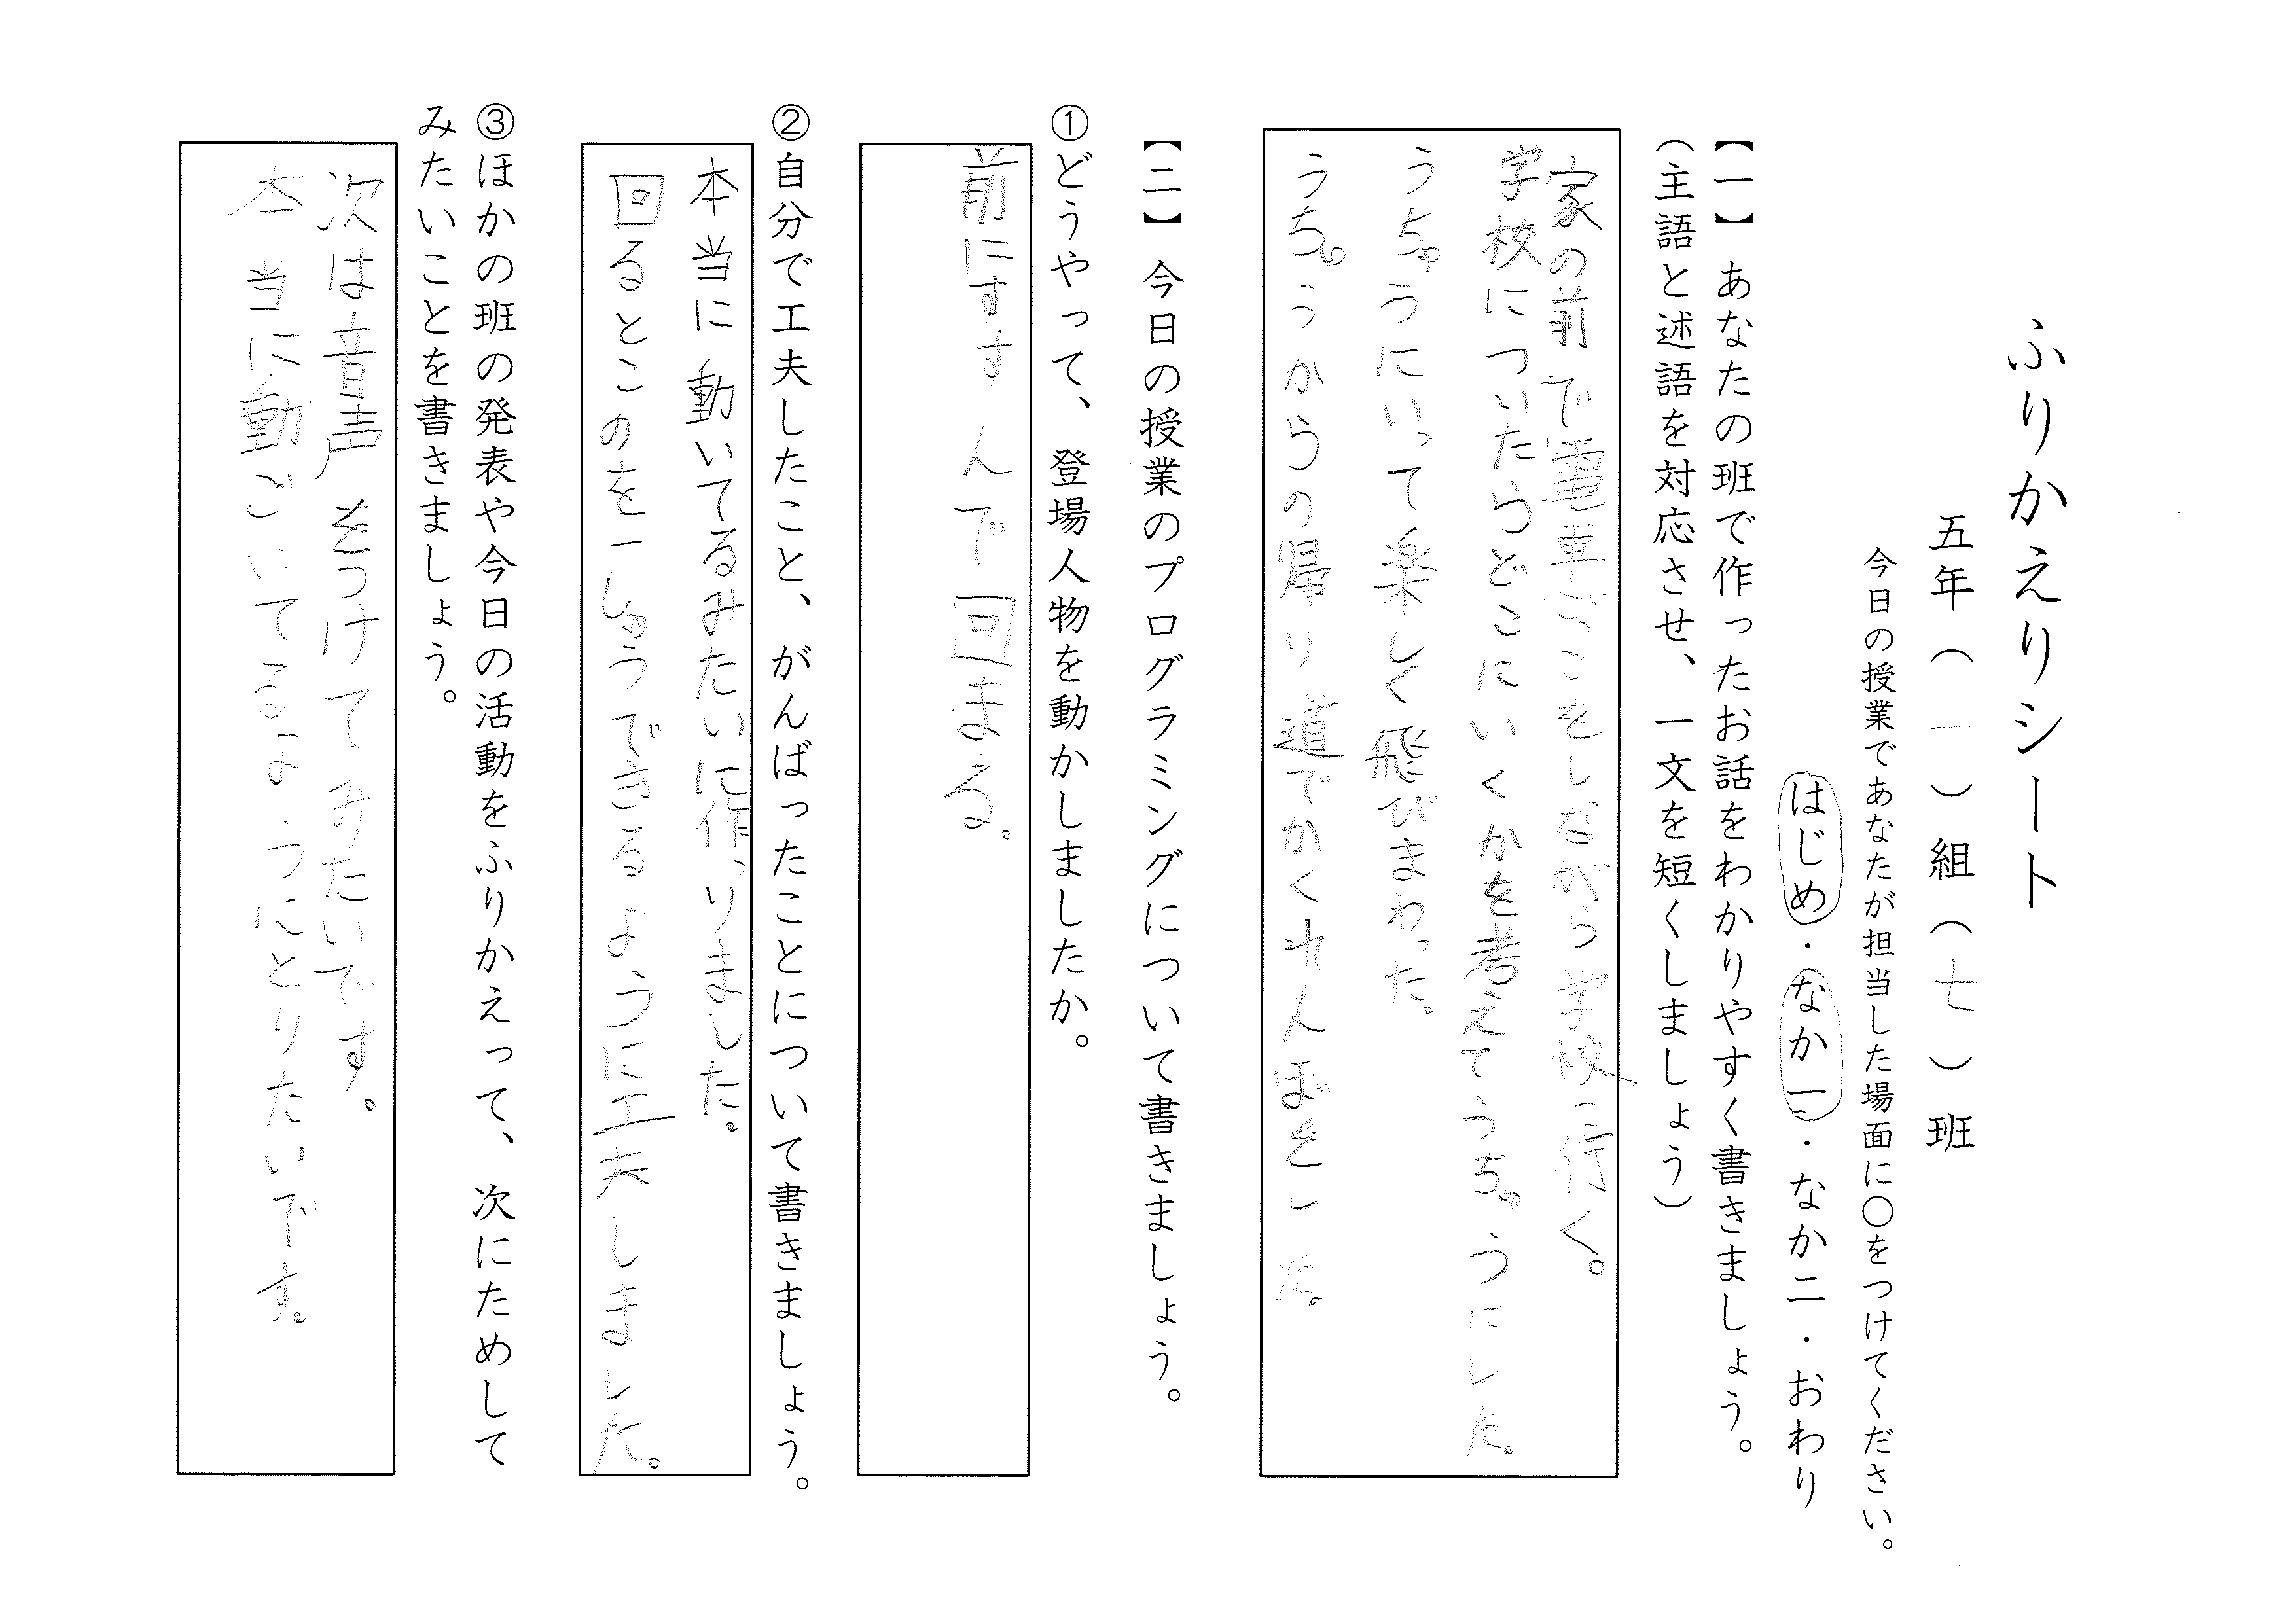 ふりかえりシート
五年（一）組（七）班
今日の授業であなたが担当した場面に〇をつけてください。
はじめ・なか一・なか二・おわり
【一】あなたの班で作ったお話をわかりやすく書きましょう。
（主語と述語を対応させ、一文を短くしましょう）
家の前で電車ごっこをしながら学校に行く。
学校についたらどこにいくかを考えてうちゅうにした。
うちゅうにいって楽しく飛びまわった。
うちゅうからの帰り道でかくれんぼをした。
【二】今日の授業のプログラミングについて書きましょう。
①どうやって、登場人物を動かしましたか。
前にすすんで回まる。
②自分で工夫したこと、がんばったことについて書きましょう。
本当に動いてるみたいに作りました。
回るとこのを一しゅうできるように工夫しました。
③ほかの班の発表や今日の活動をふりかえって、次にためして
みたいことを書きましょう。
次は音声をつけてみたいです。
本当に動ごいてるようにとりたいです。